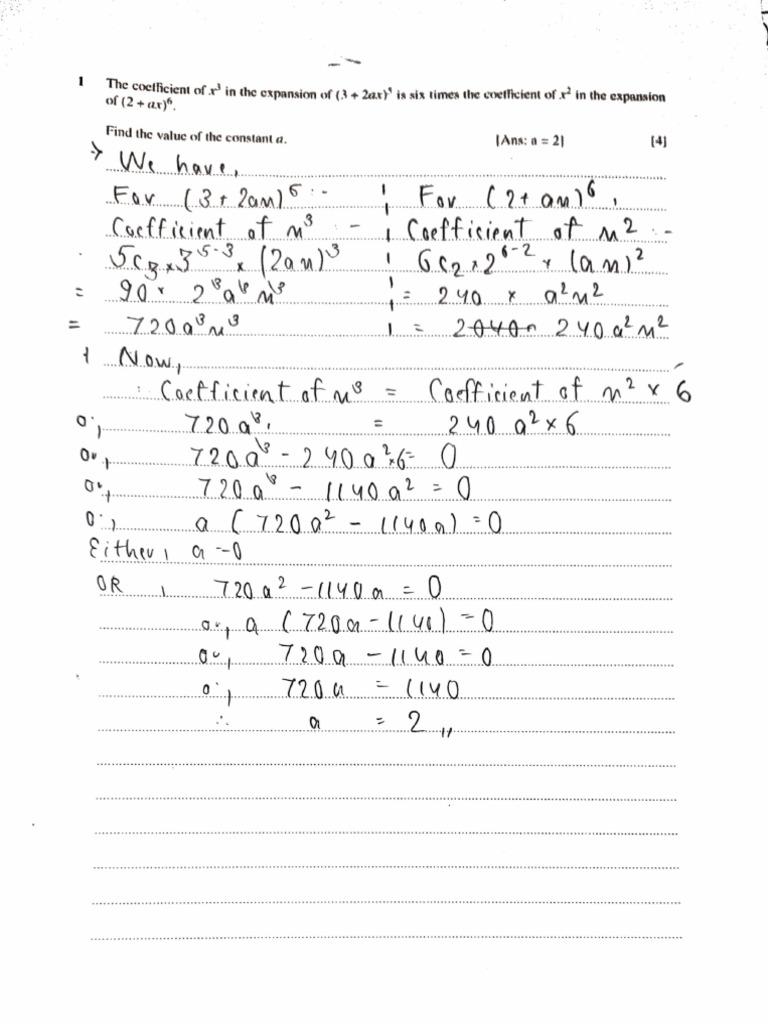 1 The coefficient of x³ in the expansion of (3 + 2ax)⁵ is six times the coefficient of x² in the expansion
of (2 + ax)⁶.
Find the value of the constant a. [Ans: a = 2] [4]
→ We have,
For (3 + 2ax)⁵ :- For (2 + ax)⁶,
Coefficient of x³ :- Coefficient of x² :-
5C₃ × 3⁵⁻³ × (2ax)³ 6C₂ × 2⁶⁻² × (ax)²
= 90 × 2³a³x³ = 240 × a²x²
= 720a³x³ = 240a²x²
Now,
Coefficient of x³ = Coefficient of x² × 6
or, 720a³ = 240 a² × 6
or, 720a³ - 240a²×6 = 0
or, 720a³ - 1140a² = 0
or, a (720a² - 1140a) = 0
Either, a = 0
OR, 720a² - 1140a = 0
or, a (720a - 1140) = 0
or, 720a - 1140 = 0
or, 720a = 1140
∴ a = 2,,